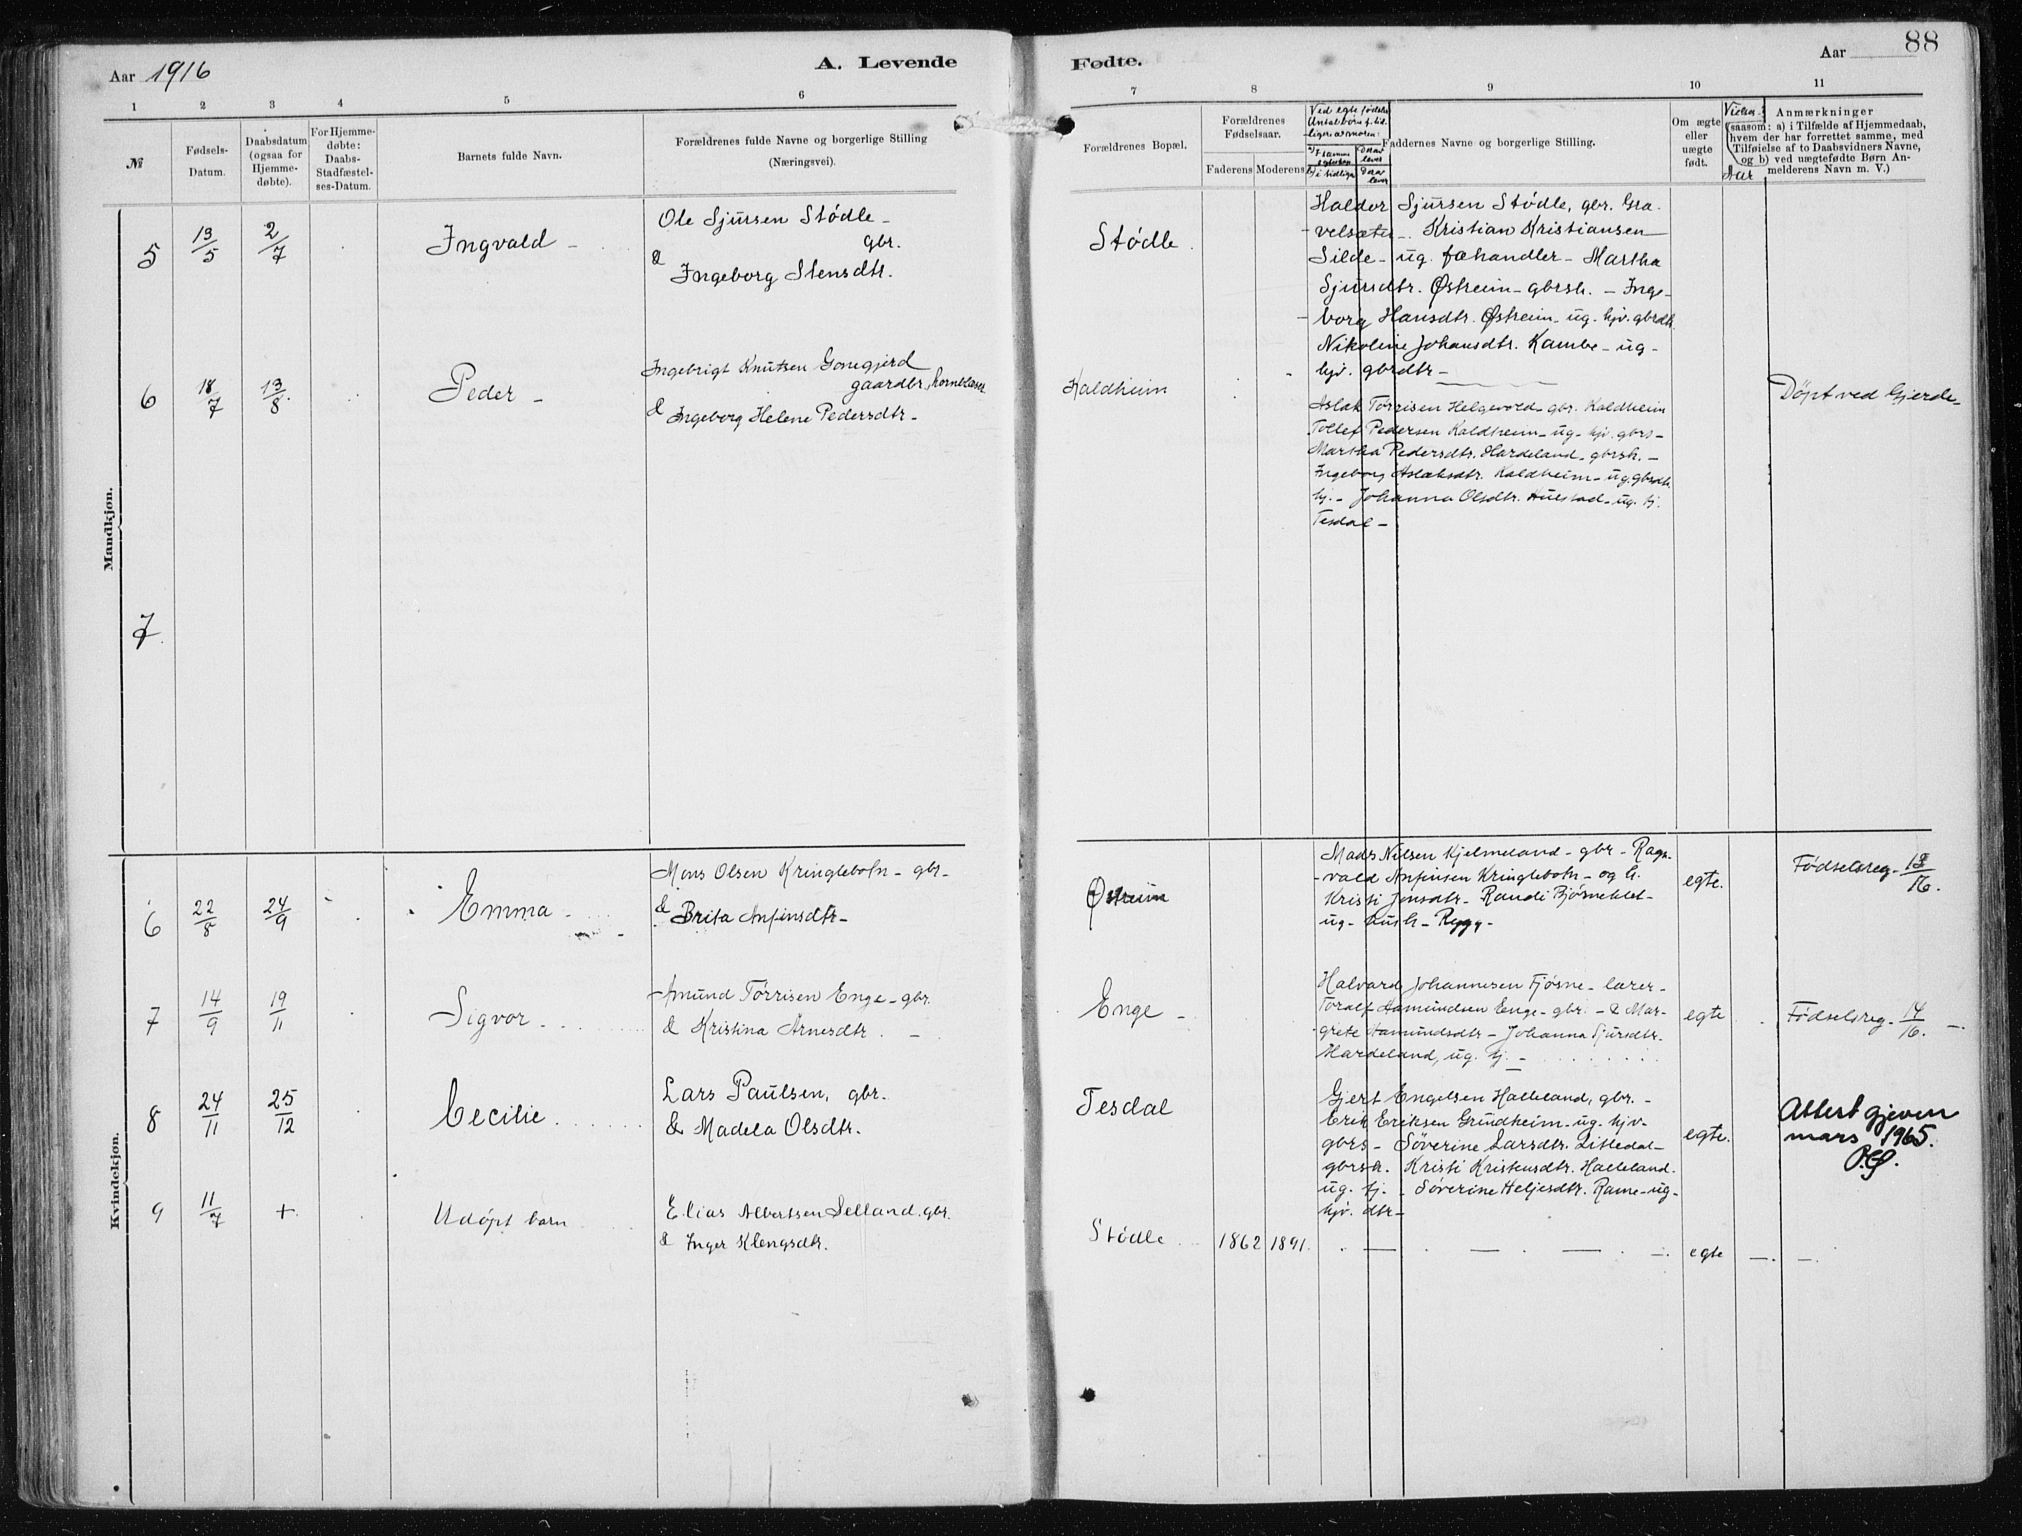 Aar 1916
A. Levende
Fødte.
Aar
88
1 2 3 4 5 6 7 8 9 10 11
№
Fødsels-
Datum.
Daabsdatum
(ogsaa for
Hjemme-
døbte).
For Hjemme-
døbte:
Daabs-
Stadfæstel-
ses-Datum.
Barnets fulde Navn.
Forældrenes fulde Navne og borgerlige Stilling
(Næringsvei).
Forældrenes Bopæl.
Forældrenes
Fødselsaar.
Faderens Moderens
Ved egte fødsler
Antal børn f. tid-
ligere av moren:
Faddernes Navne og borgerlige Stilling.
Om ægte
eller
uægte
født.
Vielses-
Aar
Anmærkninger
(saasom: a) i Tilfælde af Hjemmedaab,
hvem der har forrettet samme, med
Tilføielse af to Daabsvidners Navne,
og b) ved uægtefødte Børn An-
melderens Navn m. V.)
Mandkjøn.
5
13/5
2/7
Ingvald
Ole Sjursen Stødle -
gbr.
& Ingeborg Stensdtr.
Stødle
Haldor Sjursen Stødle, gbr. Gra-
velsæter - Kristian Kristiansen
Silde - ug. fæhandler - Martha
Sjursdtr. Østreim - gbrsk. - Inge-
borg Hansdtr. Østreim - ug. hjv. gbrdtr.
Nikoline Johansdtr. Kambe - ug -
hjv. gbrdtr -
6
18/7
13/8
Peder -
Ingebrigt Knutsen Gonegjerd
gaardbr., hornblåser
& Ingeborg Helene Pedersdtr -
Kaldheim
Aslak Tørrisen Helgevold - gbr. Kaldheim
Tollef Pedersen Kaldheim - ug. hjv. gbrs -
Martha Pedersdtr. Hardeland - gbrsk. -
Ingeborg Aslaksdtr. Kaldheim - ug. gbrdtr.
hj. - Johanna Olsdtr. Hulstad - ug. tj.
Tesdal -
Døpt ved Gjerde -
7
Kvindekjøn.
6
22/8
24/9
Emma
Mons Olsen Kringlebotn - gbr -
& Brita Anfinsdtr -
Østreim
Mads Nilsen Kjelmeland - gbr - Ragn-
vald Anfinsen Kringlebotn - og k.
Kristi Jonsdtr - Randi Bjørneklet -
ug - bush - Rygg -
egte.
Fødselsreg - 13/16.
7
14/9
19/11
Sigvor
Amund Tørrisen Enge - gbr.
& Kristina Arnesdtr. -
Enge -
Halvard Johannesen Fjøsne - lærer -
Toralf Aamundsen Enge - gbr. - & Mar-
grete Aamundsdtr - Johanna Sjursdtr.
Hardeland, ug. tj. -
egte
Fødselsreg - 14/16. -
8
24/11
25/12
Cecilie
Lars Paulsen, gbr.
& Madela Olsdtr.
Tesdal
Gjert Engelsen Halleland, gbr. -
Erik Eriksen Grindheim - ug. hjv -
gbrs - Søverine Larsdtr. Litledal -
gbrsk. Kristi Kristensdtr. Halleland.
ug. tj. - Søverine Heljesdtr. Rame - ug -
hjv. dtr -
egte.
Attest gjeven
mars 1965.
9
11/7
+
Udøpt barn
Elias Albertsen Selland. gbr.
& Inger Klengsdtr.
Stødle
1862 1891.
egte